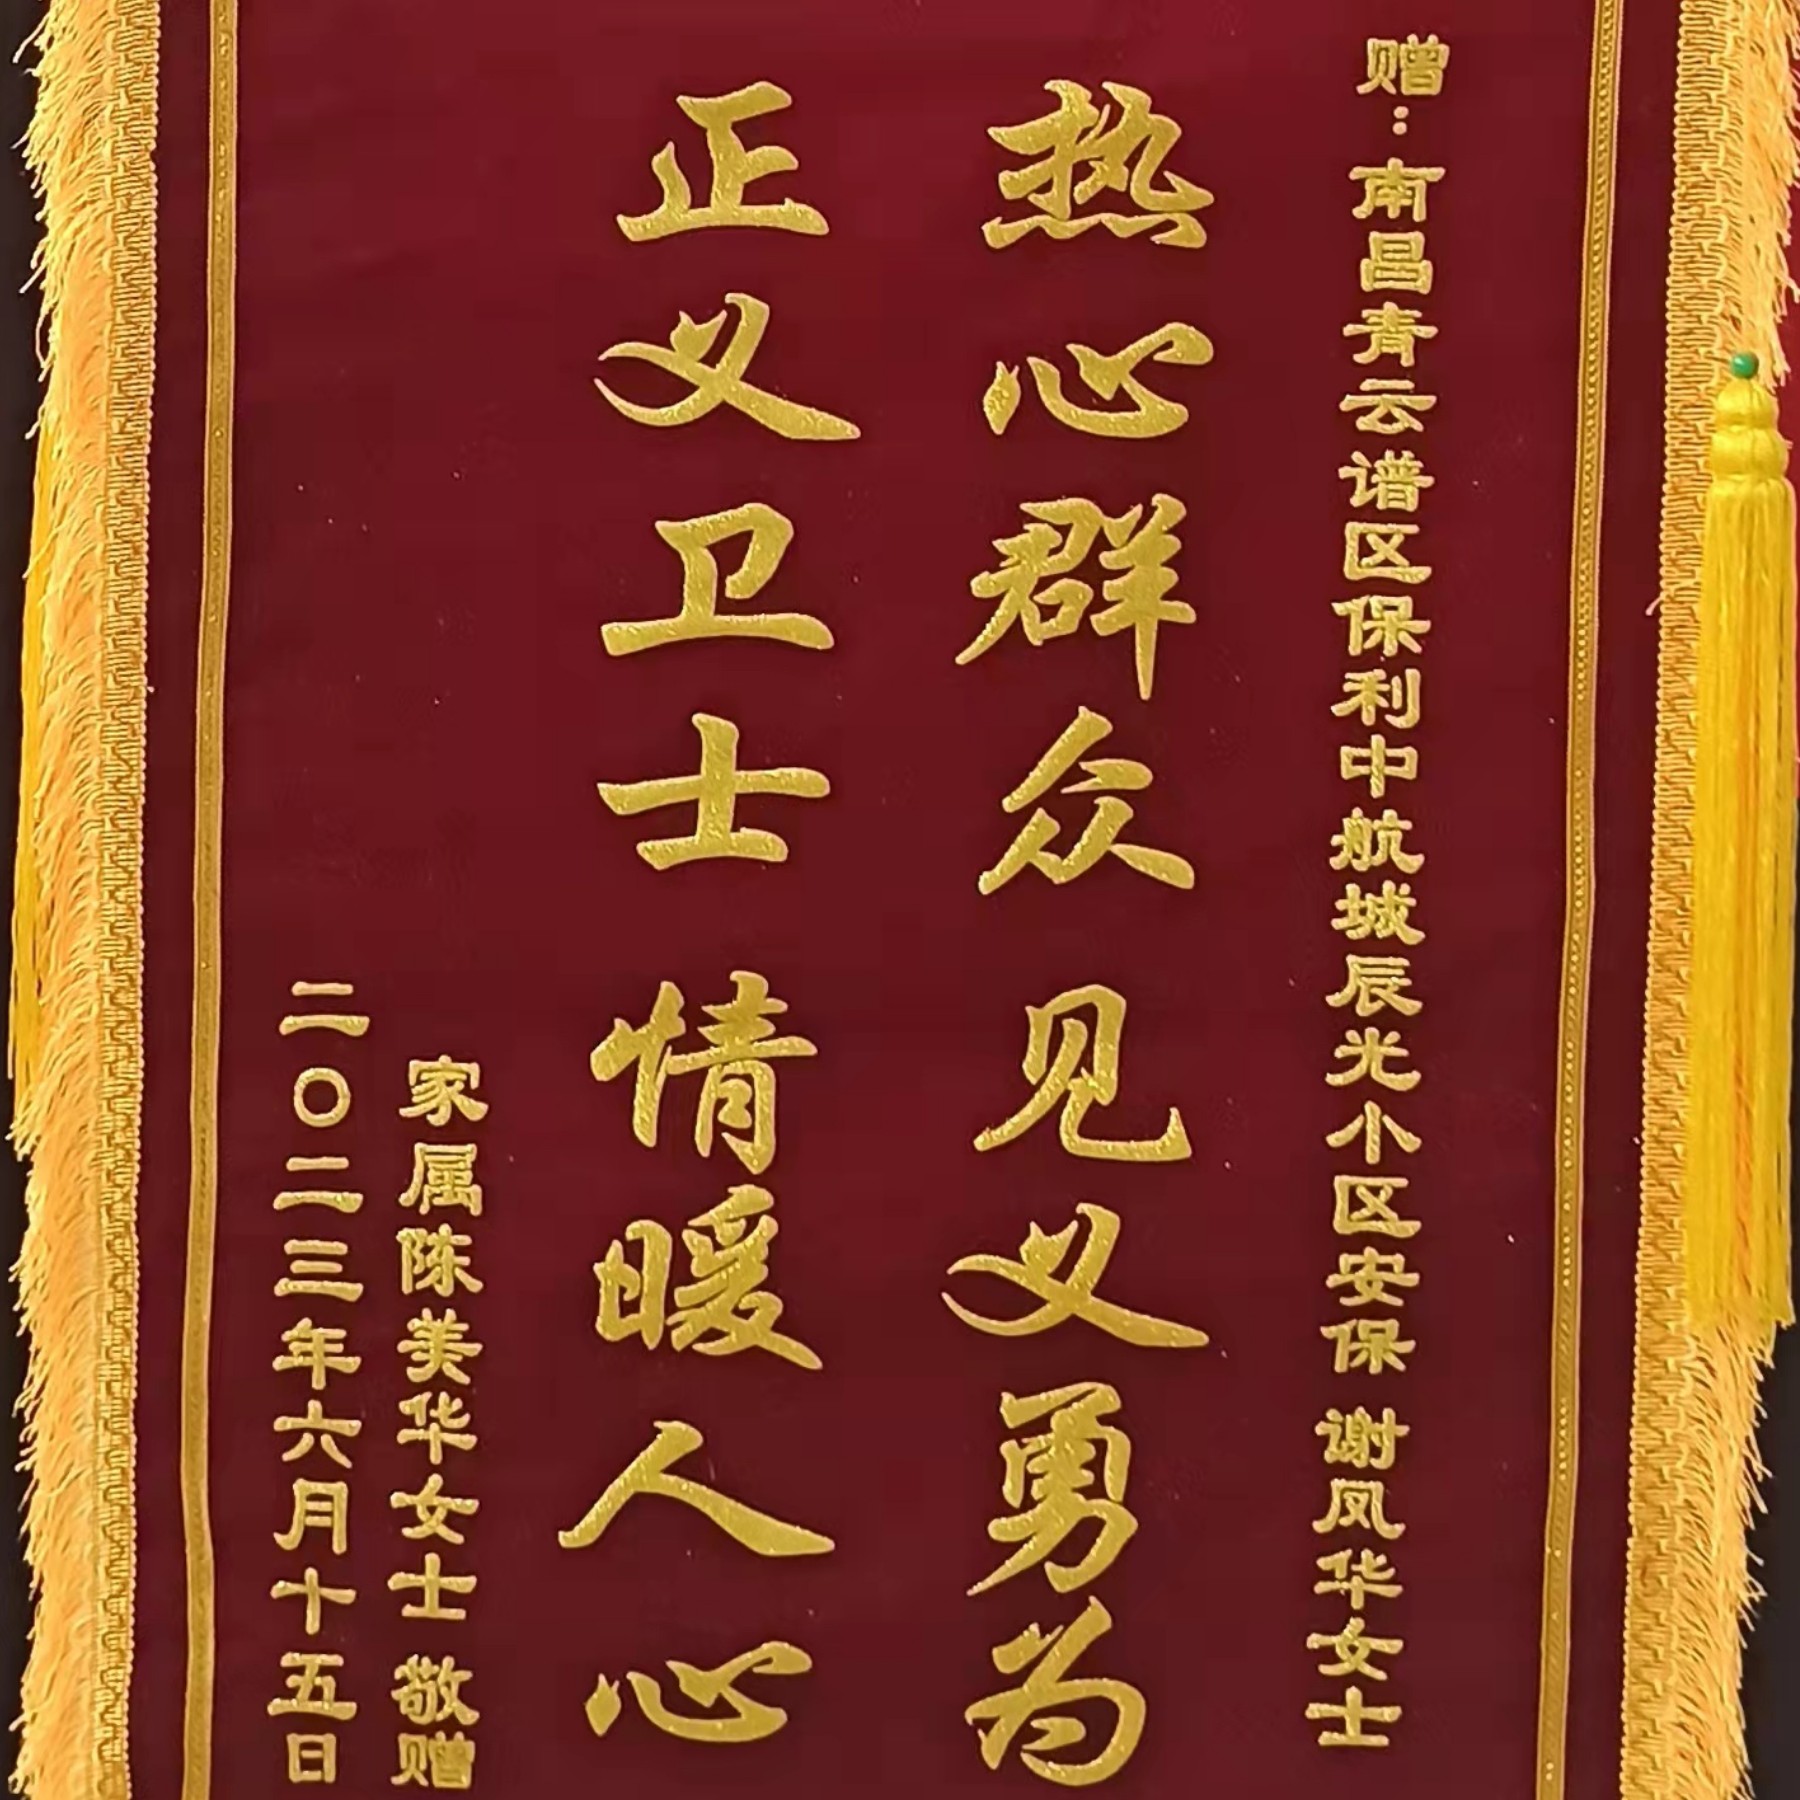 赠：南昌青云谱区保利中航城辰光小区安保 谢凤华女士
热心群众 见义勇为
正义卫士 情暖人心
家属陈美华女士 敬赠
二〇二三年六月十五日